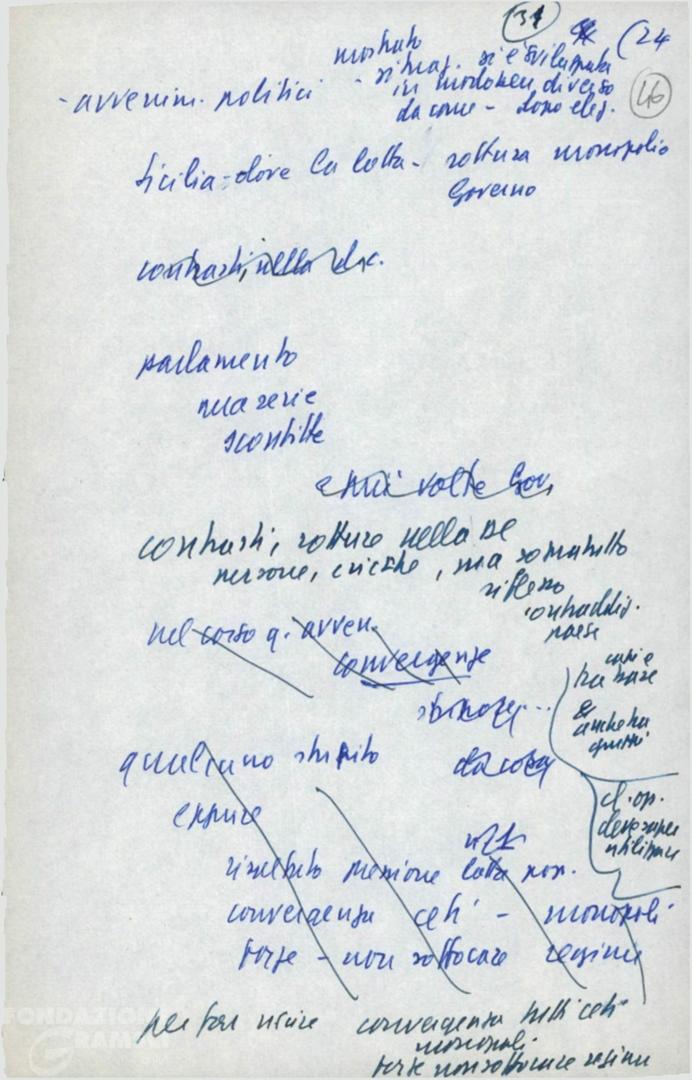 31
(24
46
mostrato
- avvenim. politici - situaz. si è sviluppata
in modo ben diverso
da come - dopo elez.
Sicilia - dove la lotta - rottura monopolio
Governo
contrasti, nella d.c.
parlamento
una serie
sconfitte
e più volte Gov.
contrasti, rotture nella DC
persone, cricche, ma soprattutto
riflesso
contraddiz.
paese
nel corso q. avven.
convergenze
strane...
capi e
tra base
e
anche tra
gruppi
qualcuno stupito
da cosa
eppure
cl. op.
deve saper
utilizzare
risultato pressione lotta pop.
convergenza ceti - monopoli
forze - non soffocare regime
per far uscire convergenza tutti ceti
monopoli
forze non soffocare regime
FONDAZIONE
GRAMSCI